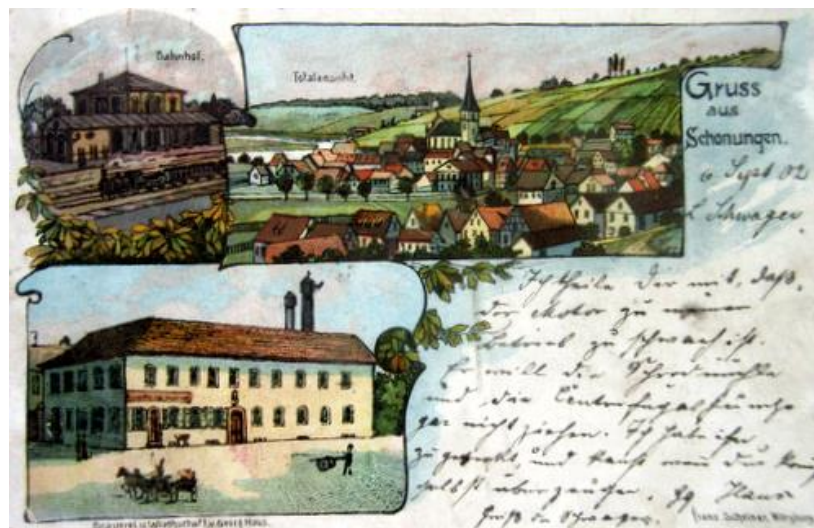 Bahnhof.
Totalansicht.
Gruss
aus
Schonungen.
6 Sept 02
L. Schwager
Ich theile Dir mit, daß,
der Motor zu
Betrieb zu schwach ist.
Er will die Schrodmühle
und die Centrifugalpumpe
gar nicht ziehen. Ich habe ihn
und kannst wenn Du
selbst überzeugen. Hans
Gruß Schwager
Brauerei u. Wirthschaft v. Georg Haus.
Franz Scheiner, Würzburg